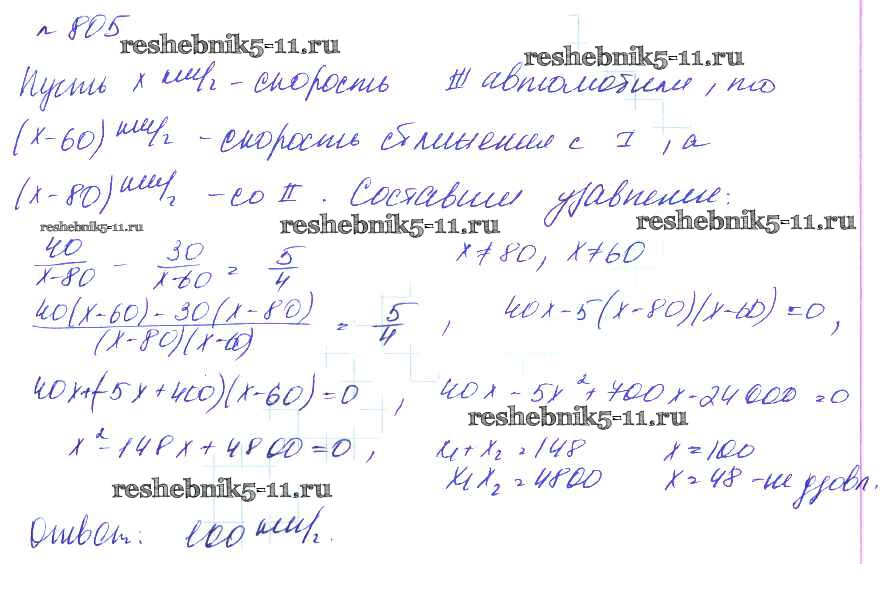 № 805
reshebnik5-11.ru
reshebnik5-11.ru
Пусть x км/г - скорость III автомобиля, то
(x-60) км/г - скорость сближения с I, а
(x-80) км/г - со II. Составим уравнение:
reshebnik5-11.ru
reshebnik5-11.ru
reshebnik5-11.ru
40/(x-80) - 30/(x-60) = 5/4 x≠80, x≠60
(40(x-60)-30(x-80))/((x-80)(x-60)) = 5/4, 40x-5(x-80)(x-60)=0,
40x+(-5x+400)(x-60)=0, 40x-5x²+700x-24000=0
reshebnik5-11.ru
x²-148x+4800=0, x₁+x₂=148 x=100
x₁x₂=4800 x=48 - не удовл.
reshebnik5-11.ru
Ответ: 100 км/г.